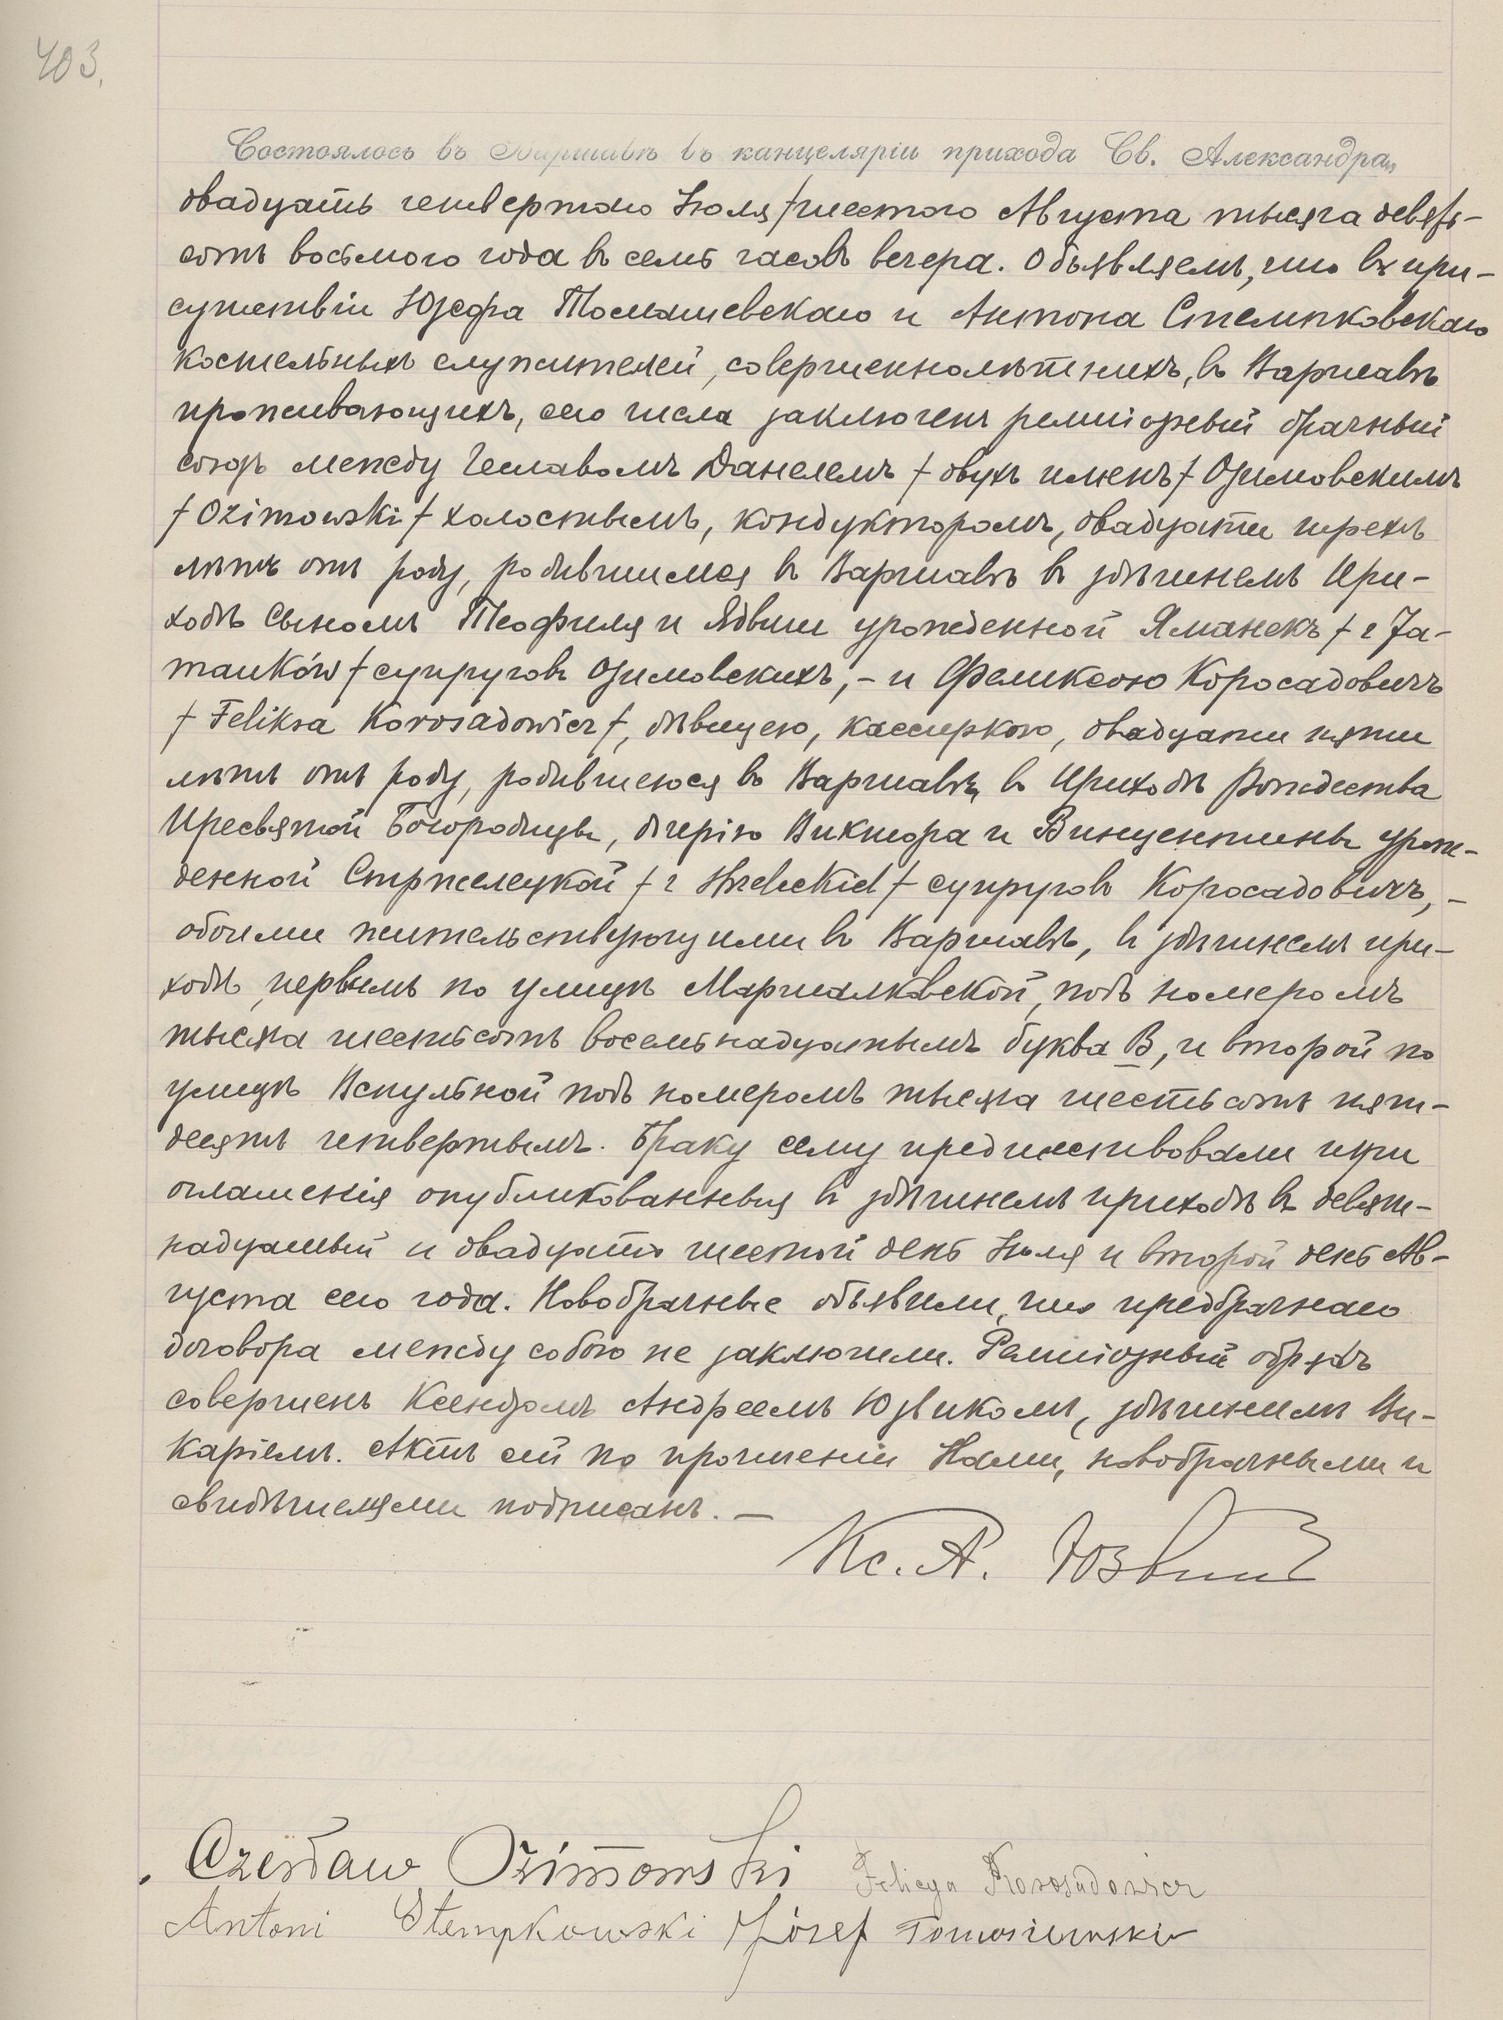 403.
Состоялось въ Варшавѣ въ канцеляріи прихода Св. Александра,
двадцать четвертаго Іюля /шестого Августа тысяча девять-
сотъ восьмого года въ семь часовъ вечера. Объявляемъ, что въ при-
сутствіи Юзефа Томашевскаго и Антона Стемпковскаго
костельныхъ служителей, совершеннолѣтнихъ, въ Варшавѣ
проживающихъ, сего числа заключенъ религіозный брачный
союзъ между Чеславомъ Данелемъ / двухъ именъ / Озимовскимъ
/ Ozimowski / холостымъ, кондукторомъ, двадцати трехъ
лѣтъ отъ роду, родившимся въ Варшавѣ въ здѣшнемъ При-
ходѣ сыномъ Теофиля и Ядвиги урожденной Яманекъ / z Ja-
manków / супруговъ Озимовскихъ, - и Феликсою Коросадовичъ
/ Feliksa Korosadowicz /, дѣвицею, кассиркою, двадцати пяти
лѣтъ отъ роду, родившеюся въ Варшавѣ, въ Приходѣ Рождества
Пресвятой Богородицы, дочерію Виктора и Винцентины урож-
денной Стржелецкой / z Strzeleckich / супруговъ Коросадовичъ, -
обоими жительствующими въ Варшавѣ, въ здѣшнемъ при-
ходѣ, первымъ по улицѣ Маршалковской, подъ номеромъ
тысяча шестьсотъ восемьнадцатымъ буква В, и второй по
улицѣ Вспульной подъ номеромъ тысяча шестьсотъ пять-
десятъ четвертымъ. Браку сему предшествовали три
оглашенія опубликованныя въ здѣшнемъ приходѣ въ девят-
надцатый и двадцать шестой день Іюля и второй день Ав-
густа сего года. Новобрачные объявили, что предбрачнаго
договора между собою не заключили. Религіозный обрядъ
совершенъ Ксендзомъ Андреемъ Юзвикомъ, здѣшнимъ Ви-
каріемъ. Актъ сей по прочтеніи Нами, новобрачными и
свидѣтелями подписанъ. —
Кс. А. Юзвикъ
Czesław Ozimowski Felicya Korosadowicz
Antoni Stempkowski Józef Tomaszewski